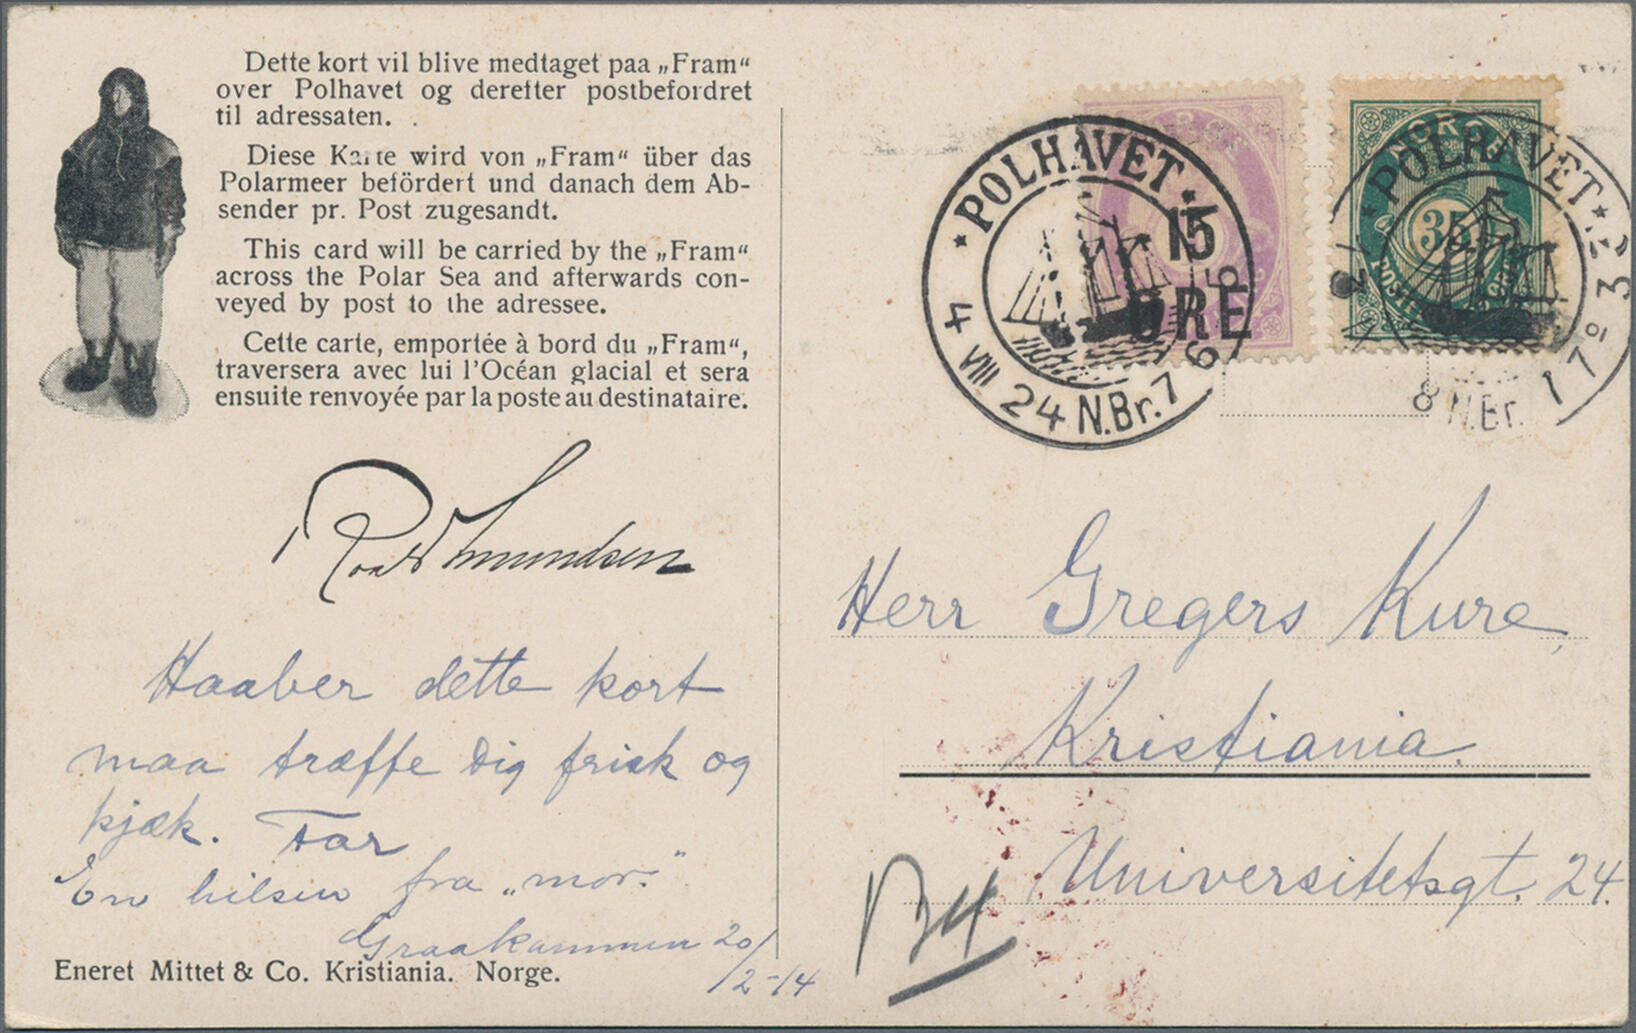 Dette kort vil blive medtaget paa „Fram“
over Polhavet og derefter postbefordret
til adressaten.
Diese Karte wird von „Fram“ über das
Polarmeer befördert und danach dem Ab-
sender pr. Post zugesandt.
This card will be carried by the „Fram“
across the Polar Sea and afterwards con-
veyed by post to the adressee.
Cette carte, emportée à bord du „Fram“,
traversera avec lui l'Océan glacial et sera
ensuite renvoyée par la poste au destinataire.
Roald Amundsen
Haaber dette kort
maa træffe Dig frisk og
kjæk. Far
En hilsen fra „mor.“
Graakammen 20/
2-14
Eneret Mittet & Co. Kristiania. Norge.
POLHAVET
4 VIII 24 N.Br. 76
15
ØRE
NORGE
35
POLHAVET
N.Br.
Herr Gregers Kure,
Kristiania.
Universitetsgt. 24.